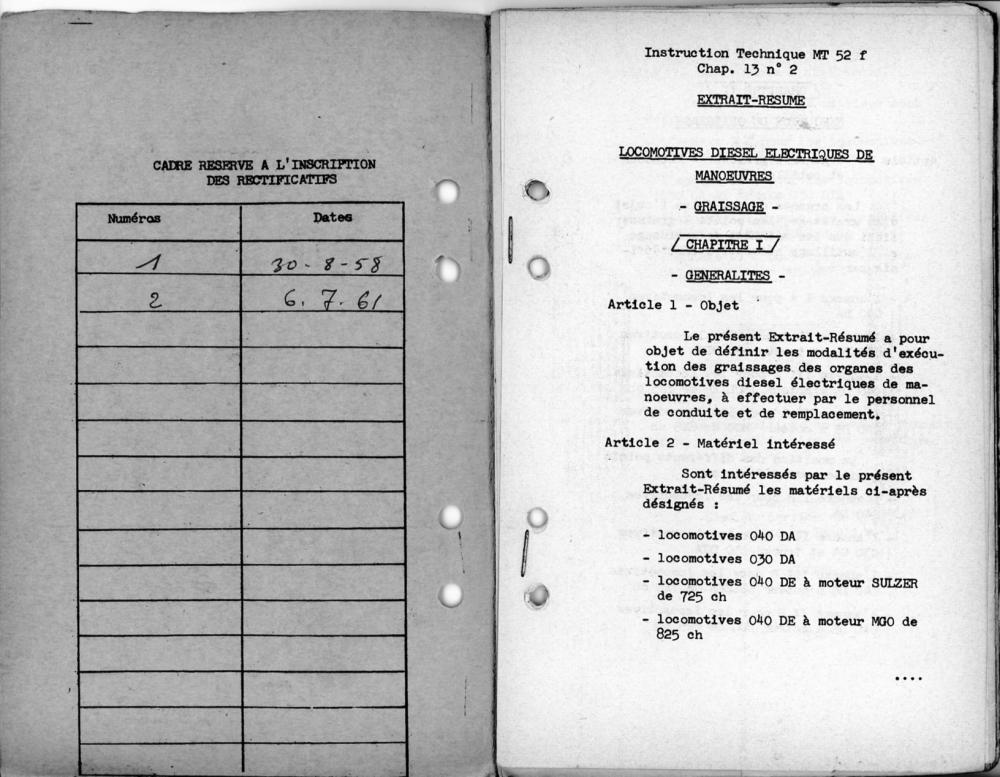 CADRE RESERVE A L'INSCRIPTION
DES RECTIFICATIFS
Numéros Dates
1 30-8-58
2 6.7.61
Instruction Technique MT 52 f
Chap. 13 n° 2
EXTRAIT-RESUME
LOCOMOTIVES DIESEL ELECTRIQUES DE
MANOEUVRES
- GRAISSAGE -
/ CHAPITRE I /
- GENERALITES -
Article 1 - Objet
Le présent Extrait-Résumé a pour
objet de définir les modalités d'exécu-
tion des graissages des organes des
locomotives diesel électriques de ma-
noeuvres, à effectuer par le personnel
de conduite et de remplacement.
Article 2 - Matériel intéressé
Sont intéressés par le présent
Extrait-Résumé les matériels ci-après
désignés :
- locomotives 040 DA
- locomotives 030 DA
- locomotives 040 DE à moteur SULZER
de 725 ch
- locomotives 040 DE à moteur MGO de
825 ch
....